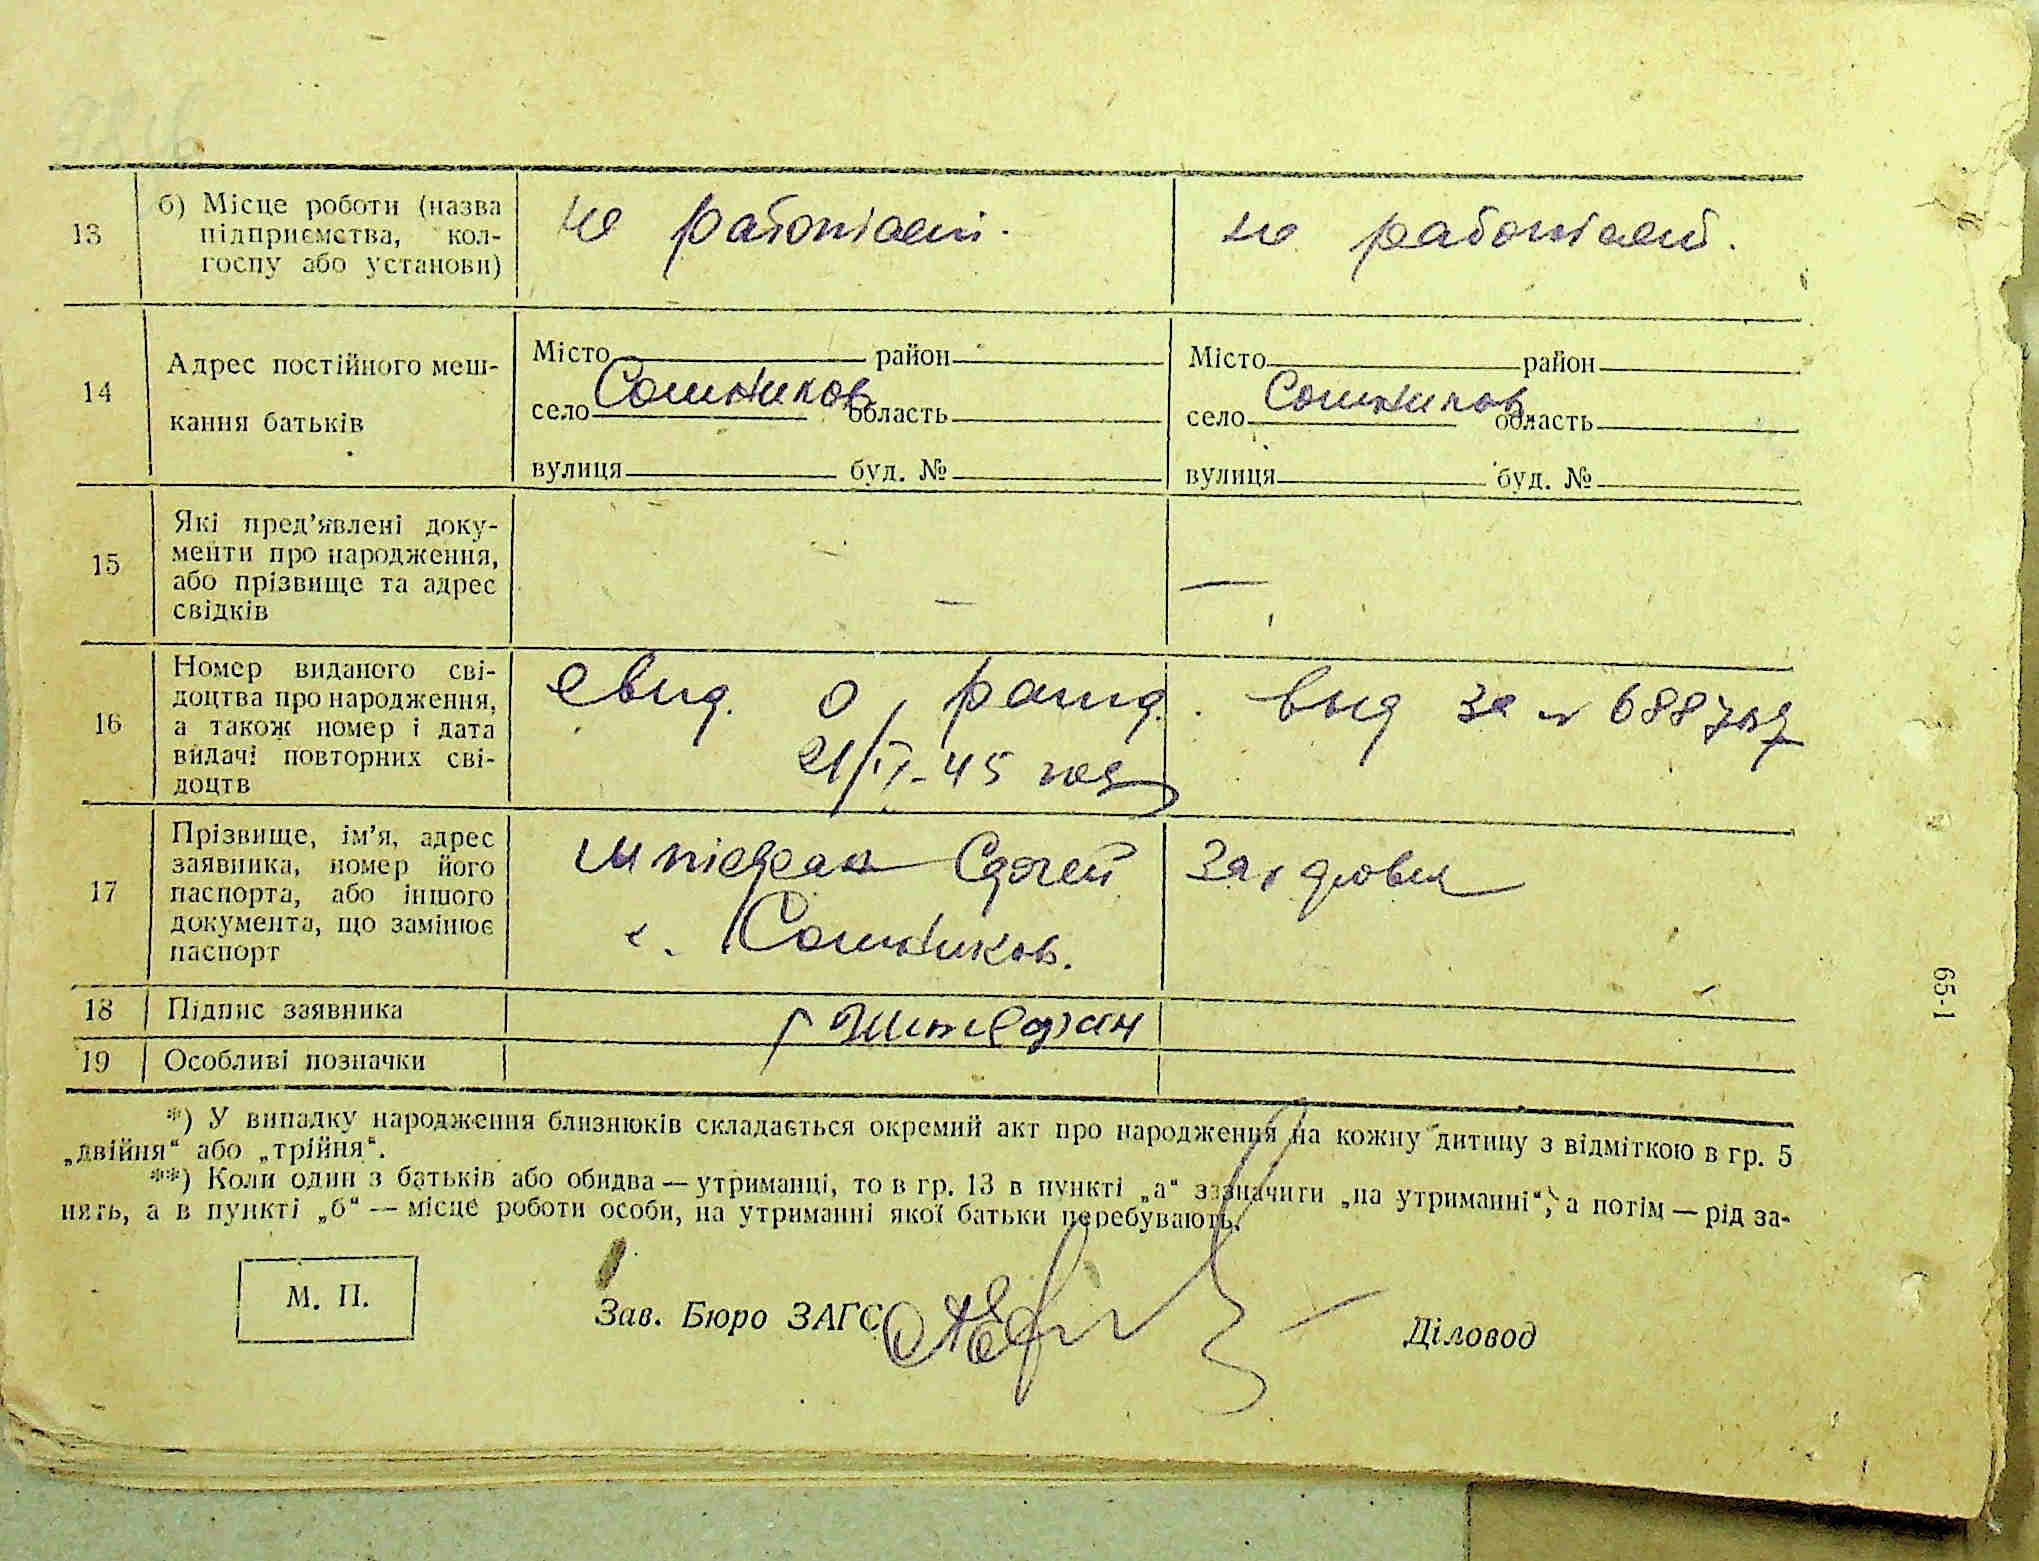 13
б) Місце роботи (назва
підприємства, кол-
госпу або установи)
не работает.
не работает.
14
Адрес постійного меш-
кання батьків
Місто район
село Сошников область
вулиця буд. №
Місто район
село Сошников область
вулиця буд. №
15
Які пред'явлені доку-
менти про народження,
або прізвище та адрес
свідків
—
—
16
Номер виданого сві-
доцтва про народження,
а також номер і дата
видачі повторних сві-
доцтв
свид. о рожд. выд за №
21/IX-45 года
17
Прізвище, ім'я, адрес
заявника, номер його
паспорта, або іншого
документа, що замінює
паспорт
с. Сошников.
18
Підпис заявника
19
Особливі позначки
*) У випадку народження близнюків складається окремий акт про народження на кожну дитину з відміткою в гр. 5
„двійня“ або „трійня“.
**) Коли один з батьків або обидва — утриманці, то в гр. 13 в пункті „а“ зазначити „на утриманні“, а потім — рід за-
нять, а в пункті „б“ — місце роботи особи, на утриманні якої батьки перебувають.
М. П.
Зав. Бюро ЗАГС
Діловод
65-1